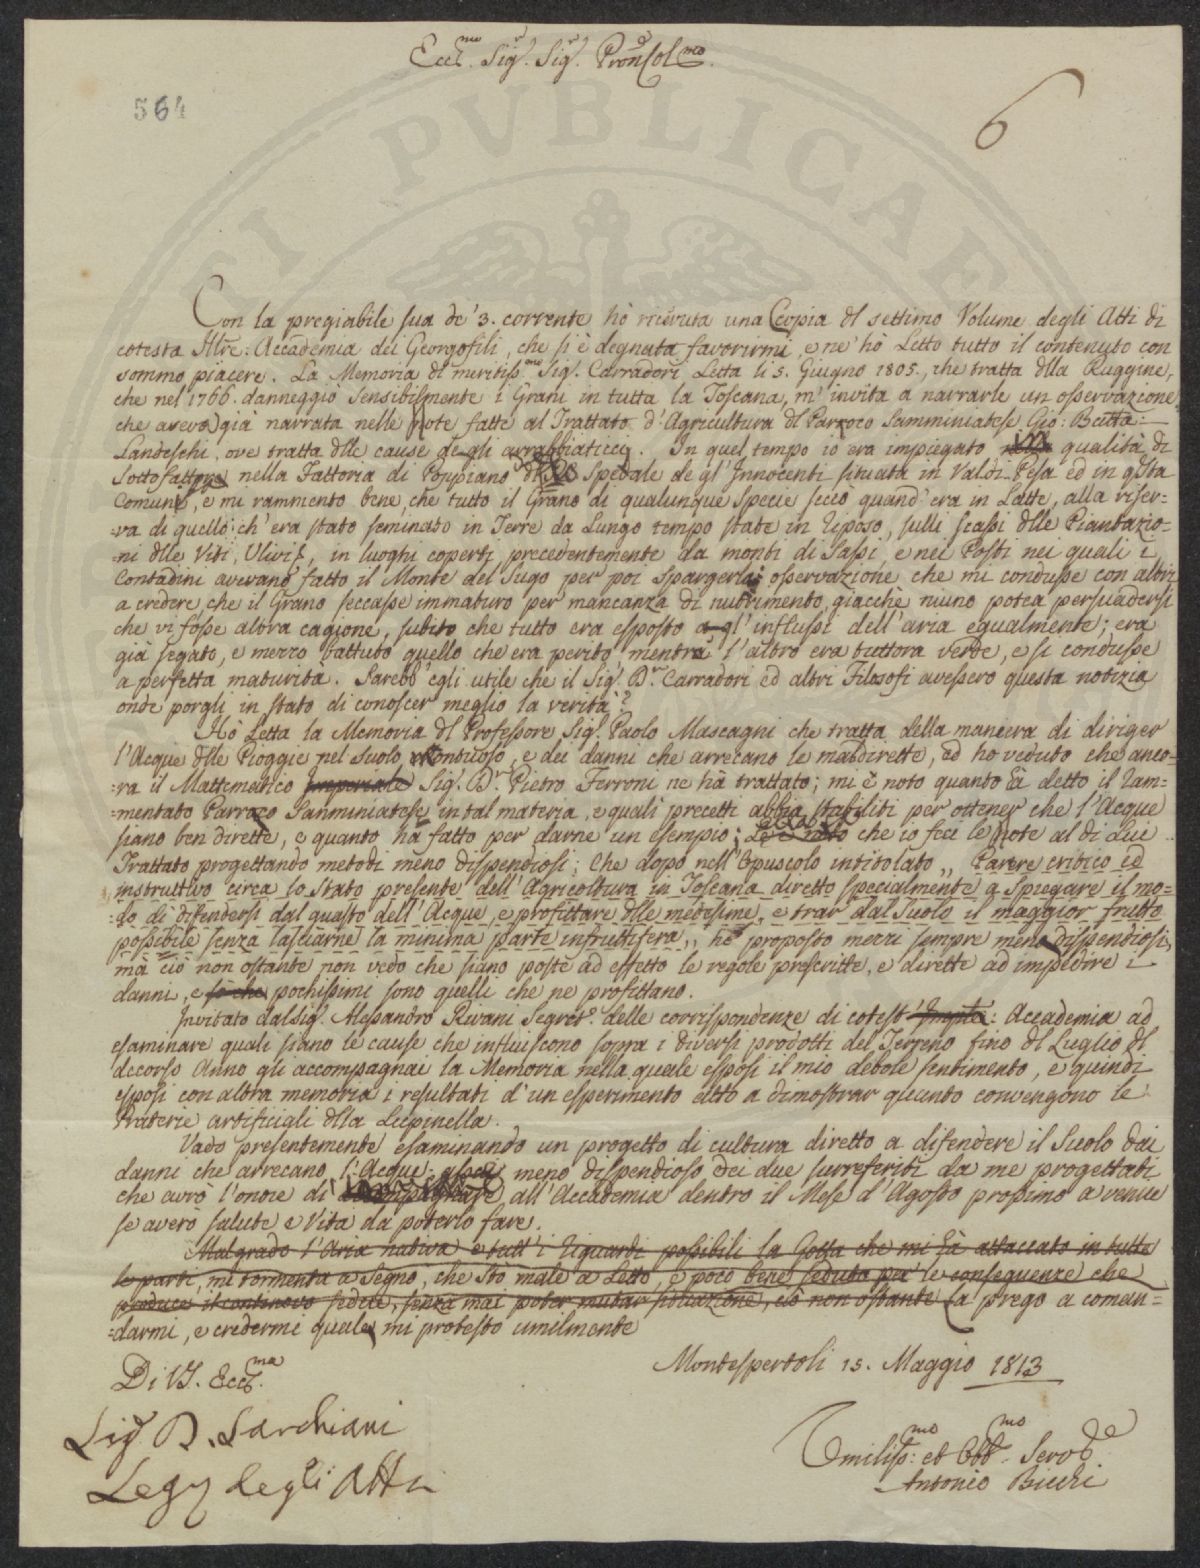 Eccmo. Sigr. Sigr. Pron Colmo.
564
6
PVBLICAE
Con la pregiabile sua de' 3. corrente hò ricevuta una Copia dl settimo Volume degli Atti di
cotesta Illre: Accademia dei Georgofili, che si è degnata favorirmi, e ne hò Letto tutto il contenuto con
sommo piacere. La Memoria dl meritissmo Sigr. Carradori Letta li 5. Giugno 1805., che tratta dlla Ruggine,
che nel 1766. danneggiò sensibilmente i Grani in tutta la Toscana, m'invita a narrarle un osservazione
che avevo già narrata nelle note fatte al Trattato d'Agricultura dl Parroco Samminiatese Gio: Batta
Landeschi, ove tratta dlle cause degli arrabbiaticci. In quel tempo io era impiegato in qualità di
Sottofattore nella Fattoria di Poppiano dllo Spedale degl'Innocenti situata in Valdi Pesa ed in qsta
Comune, e mi rammento bene, che tutto il Grano di qualunque specie seccò quand'era in Latte, alla riser-
-va di quello ch'era stato seminato in Terre da Lungo tempo state in riposo, sulli scassi dlle Piantazio-
-ni dlle Viti, Ulivi, in luoghi coperti precedentemente da monti di Sassi, e nei Posti nei quali i
Contadini avevano fatto il Monte del Sugo per poi spargerlo; osservazione che mi condusse con altri
a credere, che il Grano seccasse immaturo per mancanza di nutrimento, giacchè niuno potea persuadersi
che vi fosse altra cagione, subito che tutto era esposto a gl'influssi dell'aria egualmente; era
già segato, e mezzo battuto quello che era perito, mentre l'altro era tuttora verde, e si condusse
a perfetta maturità. Sarebb'egli utile che il Sigr. Dr. Carradori ed altri Filosofi avessero questa notizia
onde porgli in stato di conoscer meglio la verità?
Hò Letta la Memoria dl Professore Sigr. Paolo Mascagni che tratta della maniera di diriger
l'Acque dlle Pioggie nel suolo Montuoso, e dei danni che arrecano le maldirette, ed ho veduto che anco-
-ra il Mattematico Imperiale Sigr. Dr. Pietro Ferroni ne hà trattato; mi è noto quanto hà detto il ram-
-mentato Parroco Sanminiatese in tal materia, e quali precetti abbia stabiliti per ottener che l'Acque
siano ben dirette, e quanto hà fatto per darne un esempio; che io feci le note al di Lui
Trattato progettando metodi meno dispendiosi; che dopo nell'Opuscolo intitolato „ Parere critico ed
instruttivo circa lo stato presente dell'Agricoltura in Toscana diretto specialmente a spiegare il mo-
-do di difendersi dal guasto dell'Acque, e profittare dlle medesime, e trar dal suolo il maggior frutto
possibile senza lasciarne la minima parte infruttifera „ ho proposto mezzi sempre meno dispendiosi,
mà ciò non ostante non vedo che siano poste ad effetto le regole prescritte, e dirette ad impedire i
danni, e sò che pochissimi sono quelli che ne profittano.
Invitato dal Sigr. Alessandro Rivani Segreto. delle corrispondenze di cotest' Imple: Accademia ad
esaminare quali siano le cause che influiscono sopra i diversi prodotti del Terreno fino dl Luglio dl
decorso Anno gli accompagnai la Memoria nella quale esposi il mio debole sentimento, e quindi
esposi con altra memoria i resultati d'un esperimento atto a dimostrar quanto convengono le
Praterie artificiali dlla Lupinella.
Vado presentemente esaminando un progetto di cultura diretto a difendere il suolo dai
danni che arrecano l'Acque, meno dispendioso dei due surreferiti da me progettati
che avrò l'onore di all'Accademia dentro il Mese d'Agosto prossimo avenire
se averò salute e Vita da poterlo fare.
Malgrado l'Aria nativa e tutt'i riguardi possibili la Gotta che mi hà attaccato in tutte
le parti, mi tormenta a segno, che stò male a Letto, e poco bene seduto per le conseguenze che
produce il continovo sedere, senza mai poter mutar situazione, ciò non ostante La prego a coman-
-darmi, e credermi quale mi protesto umilmente
Di VS. Eccma.
Montespertoli 15. Maggio 1813
Sigr. D. Sarchiani
Segr degli Atti
Umilissmo: et Obbmo. Servde
Antonio Bicchi